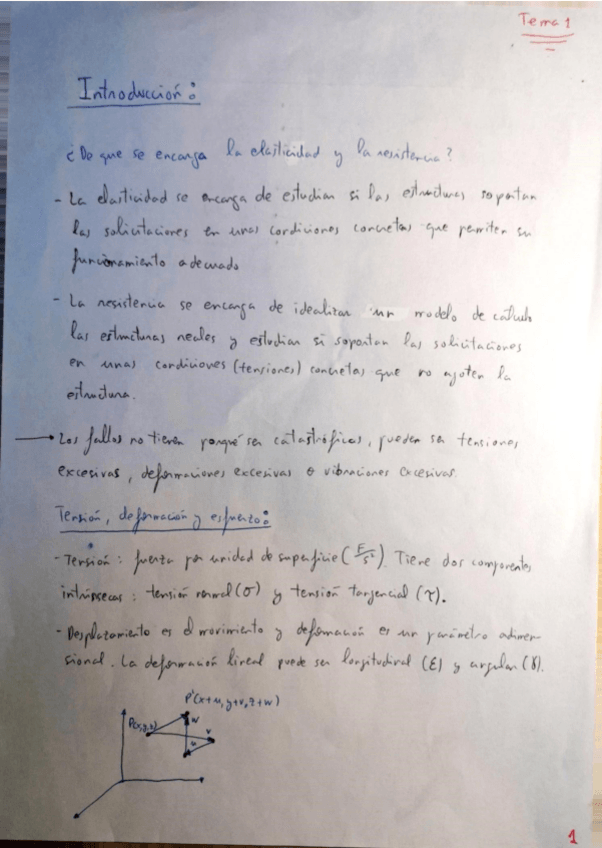 Tema 1
Introducción:
¿De que se encarga la elasticidad y la resistencia?
- La elasticidad se encarga de estudiar si las estructuras soportan
las solicitaciones en unas condiciones concretas que permiten su
funcionamiento adecuado
- La resistencia se encarga de idealizar un modelo de cálculo
las estructuras reales y estudiar si soportan las solicitaciones
en unas condiciones (tensiones) concretas que no agoten la
estructura.
→ Los fallos no tienen porqué ser catastróficos, pueden ser tensiones
excesivas, deformaciones excesivas o vibraciones excesivas.
Tensión, deformación y esfuerzo:
- Tensión: fuerza por unidad de superficie (F/S). Tiene dos componentes
intrínsecas: tensión normal (σ) y tensión tangencial (τ).
- Desplazamiento es el movimiento y deformación es un parámetro adimen-
sional. La deformación lineal puede ser longitudinal (ε) y angular (γ).
P'(x+u, y+v, z+w)
P(x,y,z)
w
v
u
1